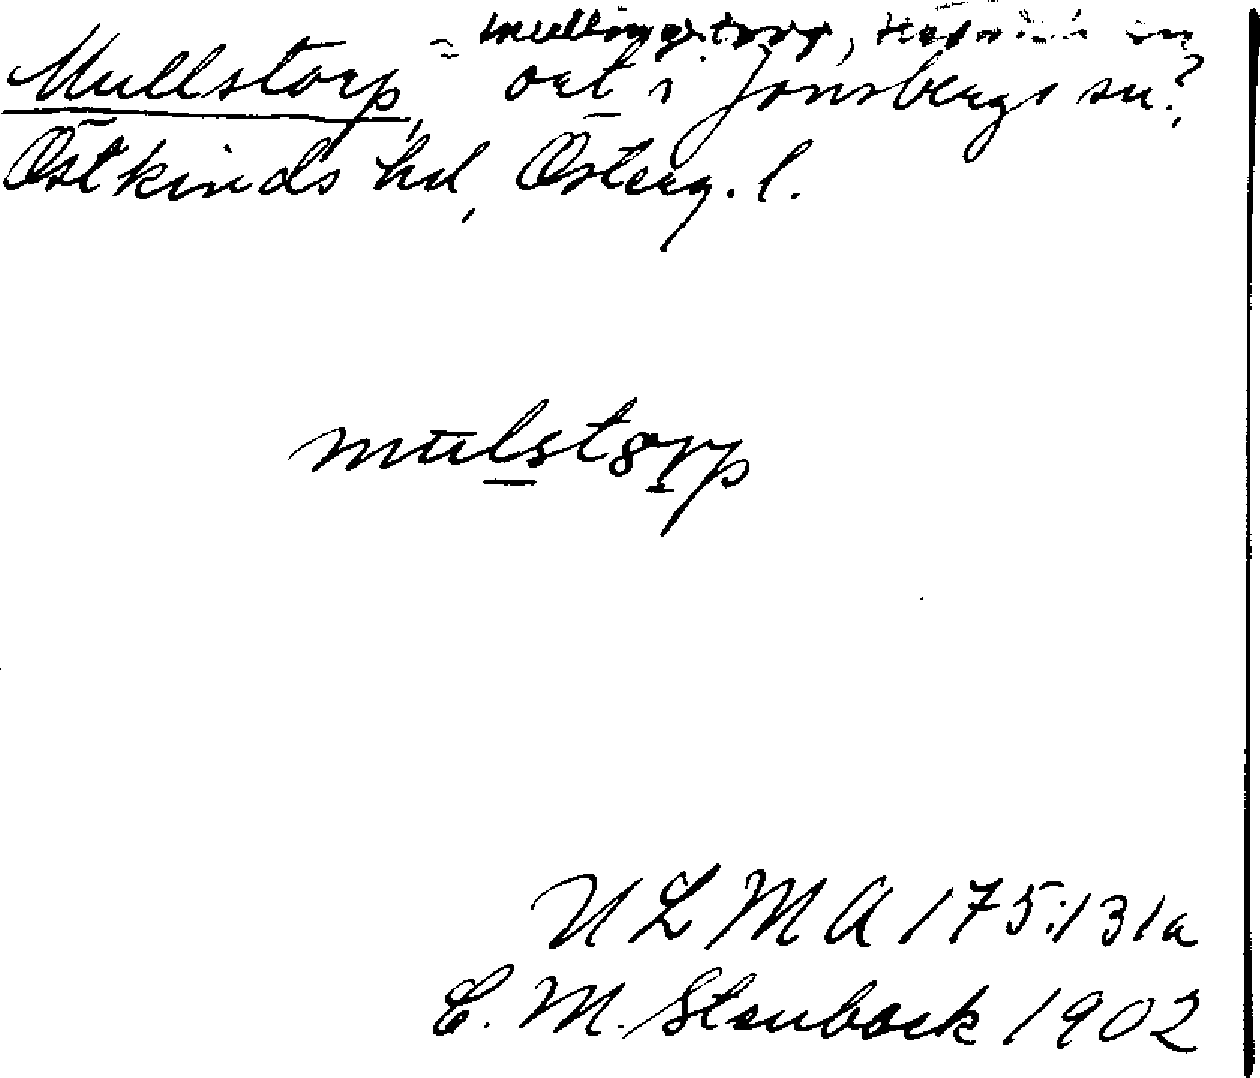 = Mullingstorp, Häradsh sn
Mullstorp, ort i Jonsbergs sn?
Östkinds hd, Österg. l.
mūlstorp
ULMA 175:131a
C. M. Stenbock 1902